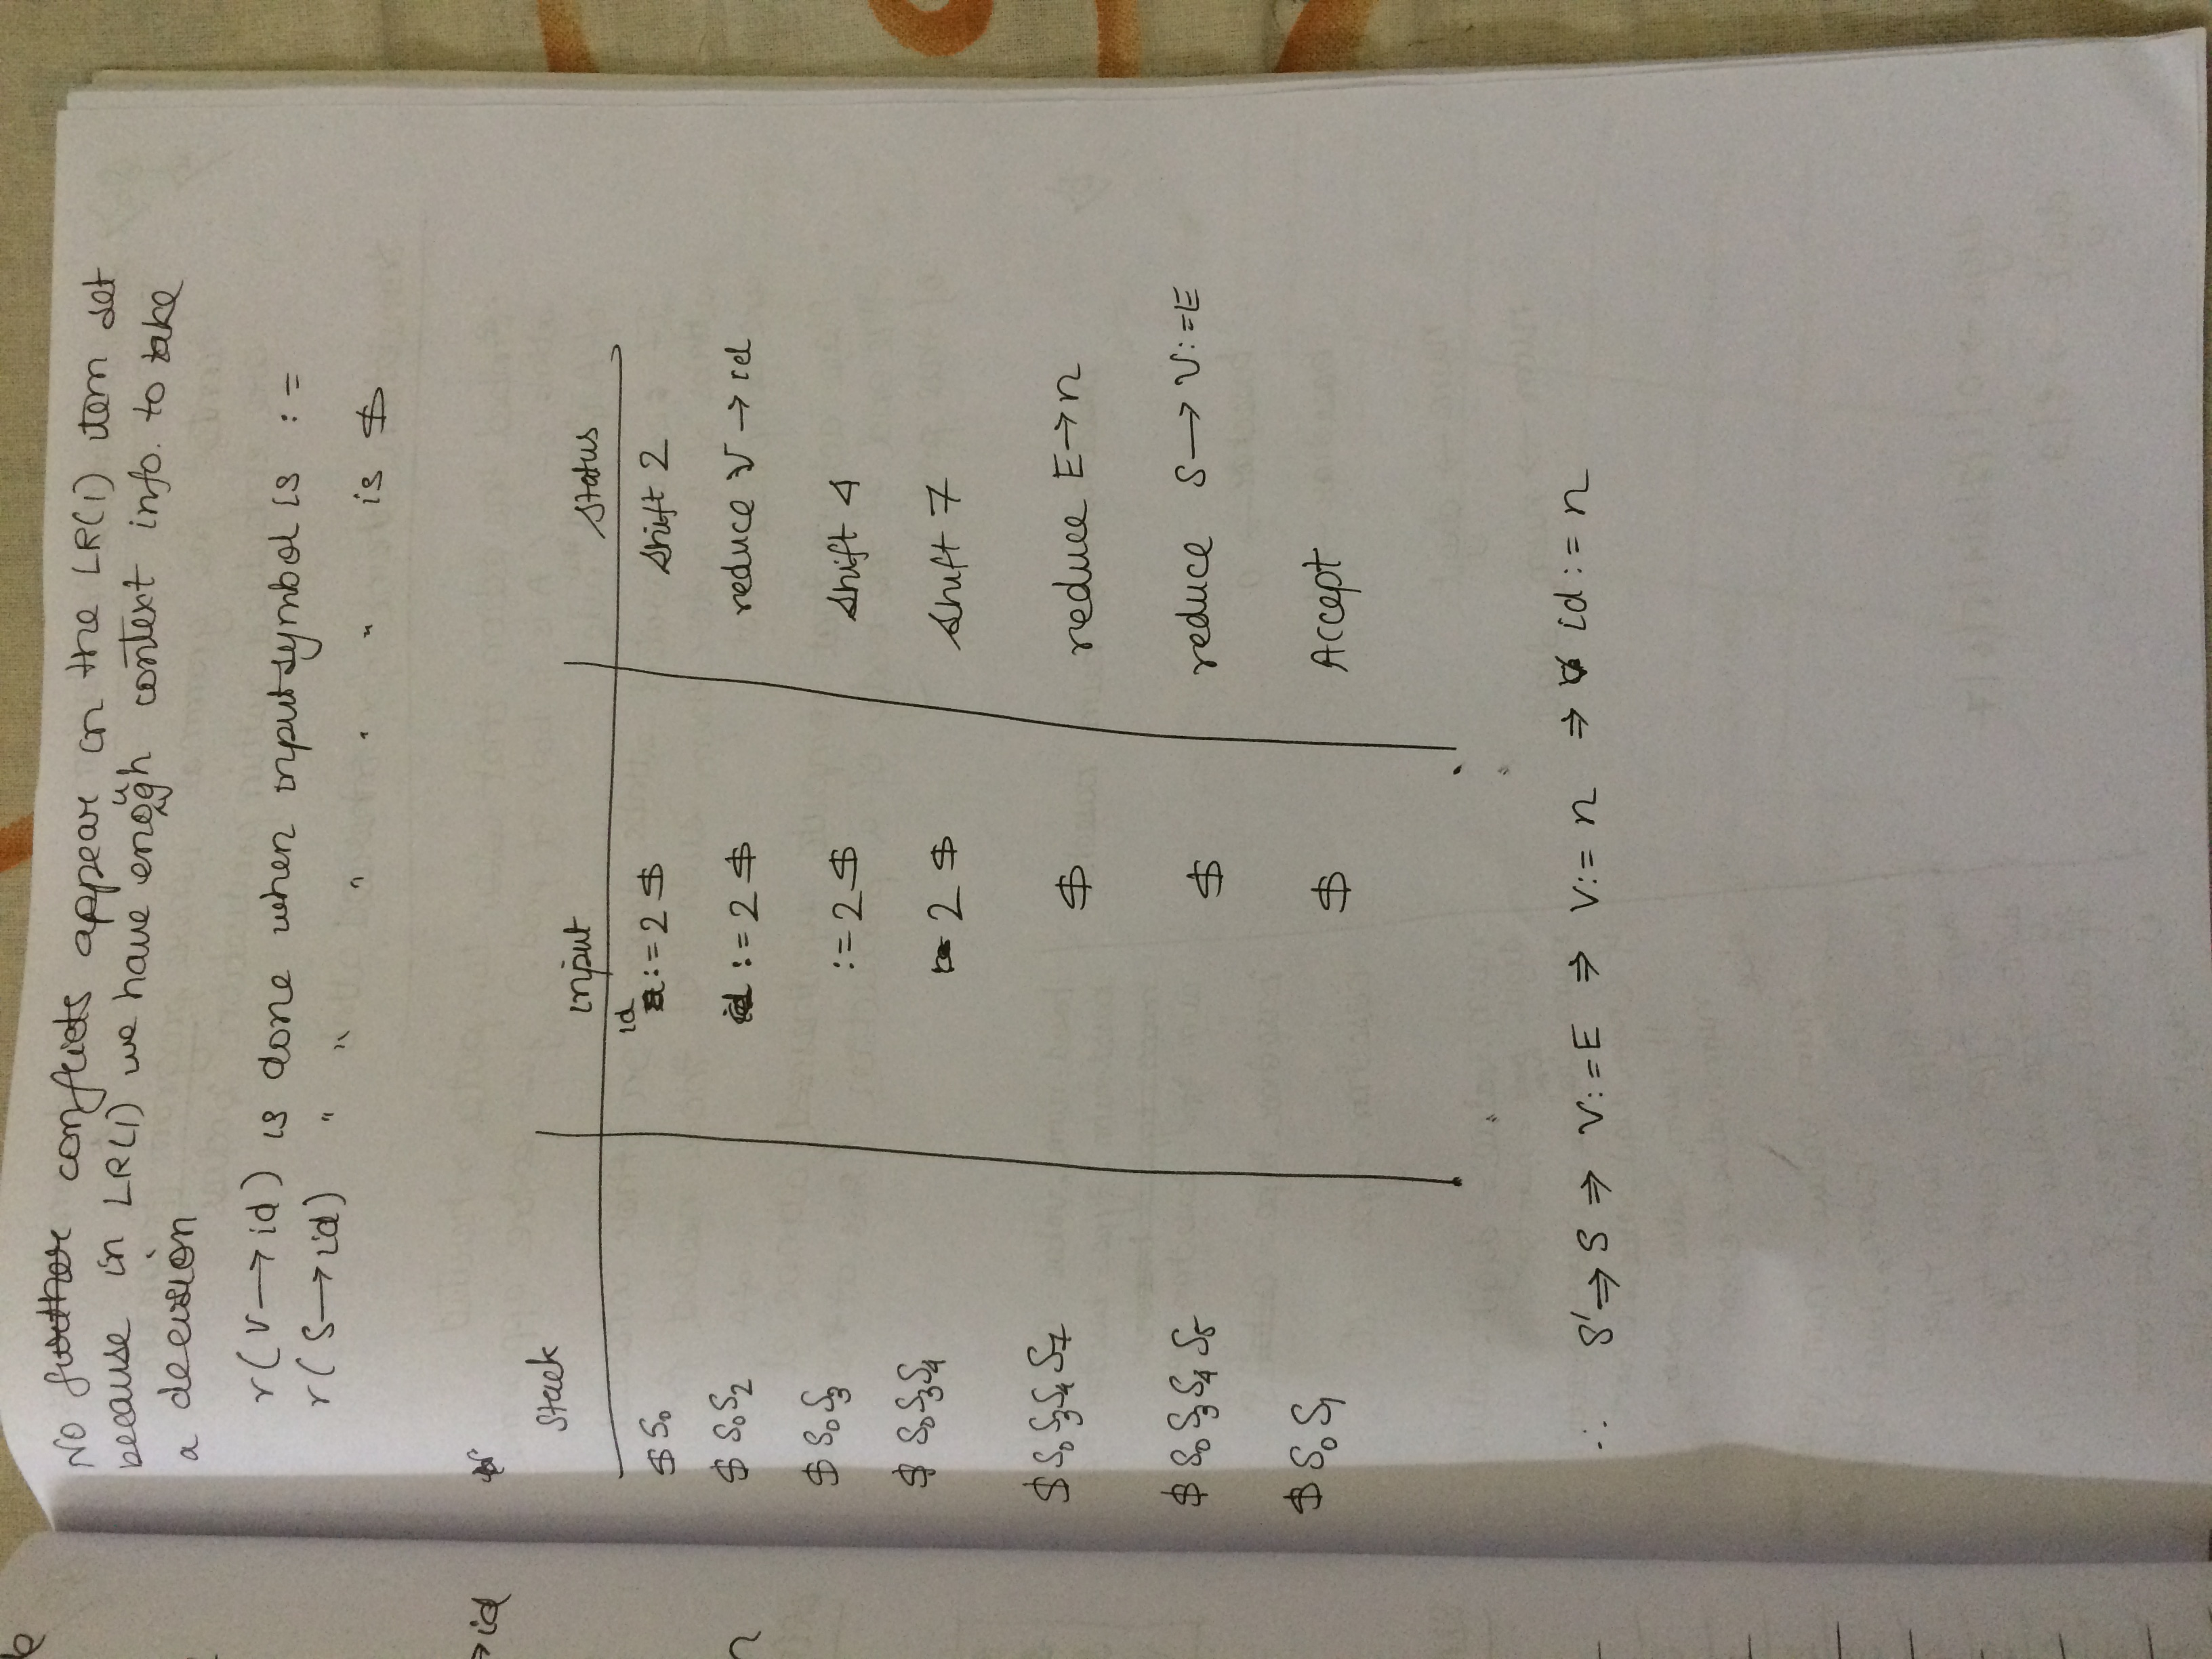 No further conflicts appear in the LR(1) item set
because in LR(1) we have enough context info. to take
a decision
r(V→id) is done when input symbol is :=
r(S→id) " " " " " is $
→id
Stack | input | Status
$ S0 | id := 2 $ | Shift 2
$ S0S2 | := 2 $ | reduce V → id
$ S0S3 | := 2 $ | Shift 4
$ S0S3S4 | 2 $ | Shift 7
$ S0S3S4S7 | $ | reduce E→n
$ S0S3S4S5 | $ | reduce S → V:=E
$ S0S1 | $ | Accept
∴ S'⇒S ⇒ V:=E ⇒ V:= n ⇒ id := n